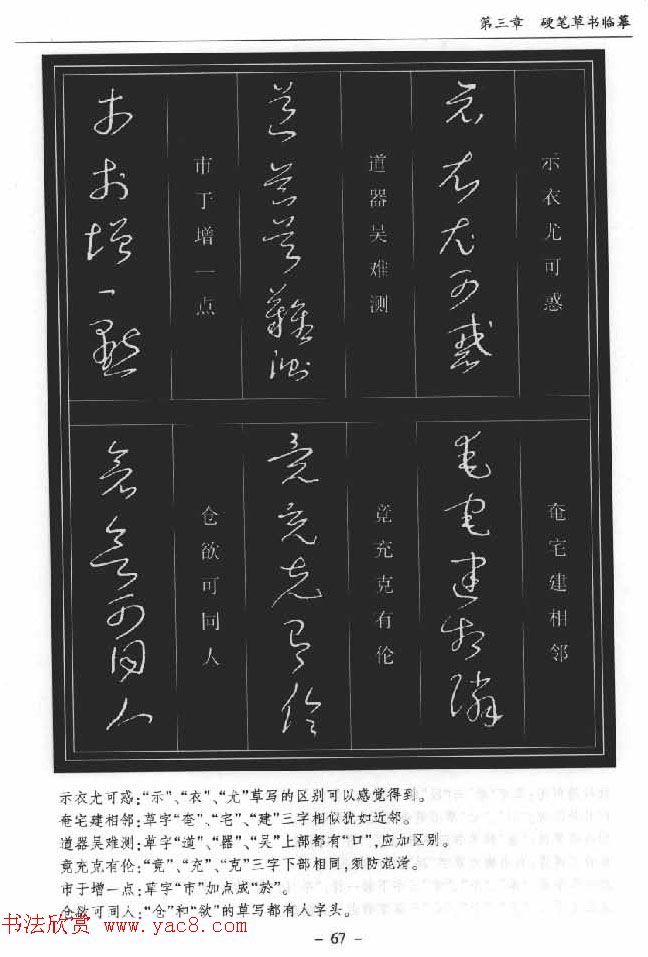 第三章 硬笔草书临摹
示衣尤可惑
示衣尤可惑
道器吴难测
道器吴難測
市于增一点
市於增一點
奄宅建相邻
奄宅建相鄰
竟充克有伦
竟充克有倫
仓欲可同人
倉欲可同人
示衣尤可惑:“示”、“衣”、“尤”草写的区别可以感觉得到。
奄宅建相邻:草字“奄”、“宅”、“建”三字相似犹如近邻。
道器吴难测:草字“道”、“器”、“吴”上部都有“口”,应加区别。
竟充克有伦:“竟”、“充”、“克”三字下部相同,须防混淆。
市于增一点:草字“市”加点成“於”。
仓欲可同人:“仓”和“欲”的草写都有人字头。
书法欣赏 www.yac8.com
- 67 -